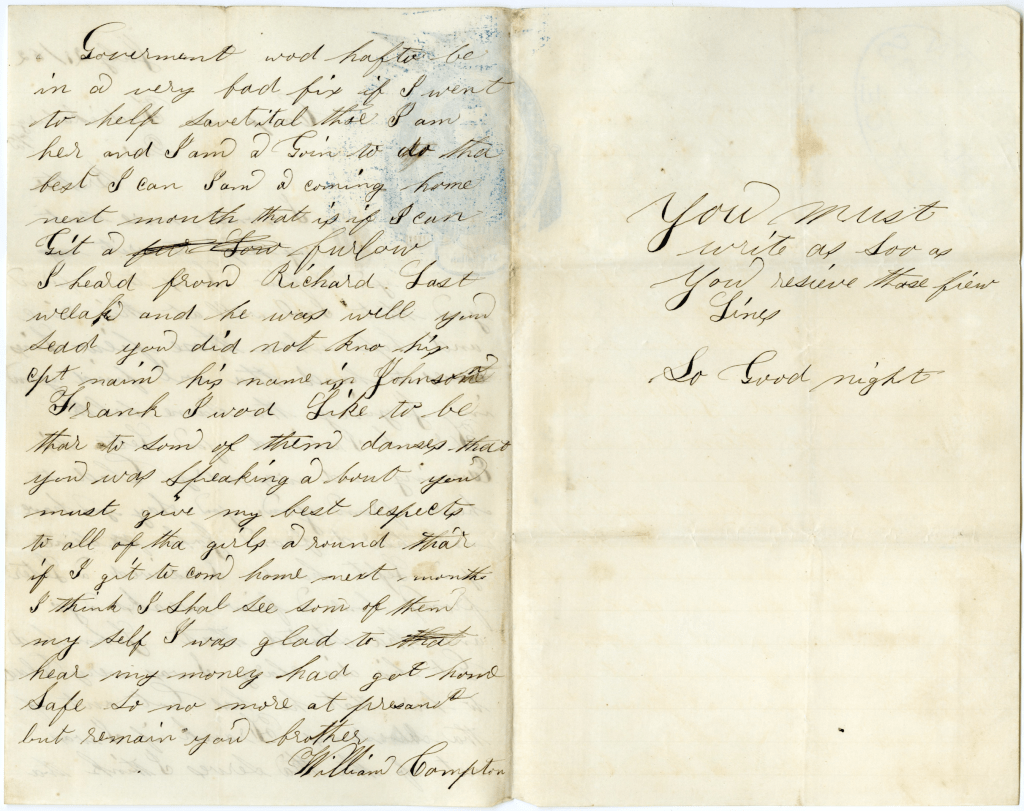 Goverment wod hafto be
in a very bad fix if I went
to help savetital thoe I am
her and I am a Goin to do tha
best I can I am a coming home
next month that is if I can
Git a furlow
I heard from Richard Last
weak and he was well you
sead you did not kno his
cpt naim his name is Johnson
Frank I wod Like to be
thar to som of them danses that
you was speaking a bout you
must give my best respects
to all of tha girls a round thar
if I git to com home next month
I think I shal see som of them
my self I was glad to that
hear my money had got home
Safe so no more at presant
but remain your brother
William Compton
You must
write as soo as
you resieve those fiew
Lines
So Good night